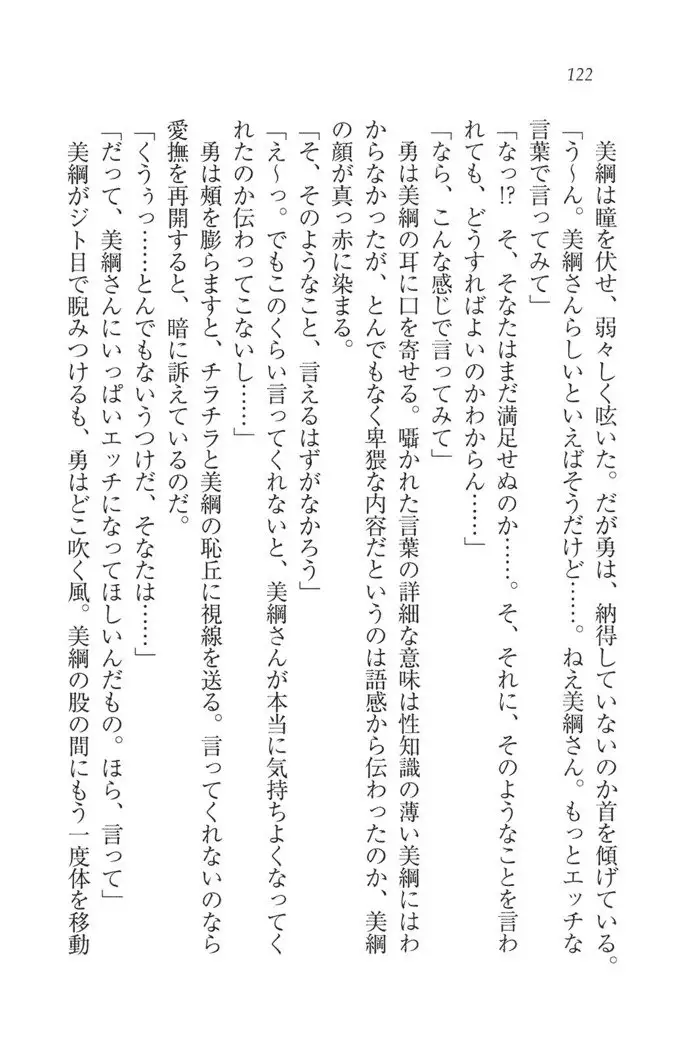 122
美綱は瞳を伏せ、弱々しく呟いた。だが勇は、納得していないのか首を傾げている。
「う～ん。美綱さんらしいといえばそうだけど……。ねえ美綱さん。もっとエッチな
言葉で言ってみて」
「なっ!?　そ、そなたはまだ満足せぬのか……。そ、それに、そのようなことを言わ
れても、どうすればよいのかわからん……」
「なら、こんな感じで言ってみて」
勇は美綱の耳に口を寄せる。囁かれた言葉の詳細な意味は性知識の薄い美綱にはわ
からなかったが、とんでもなく卑猥な内容だというのは語感から伝わったのか、美綱
の顔が真っ赤に染まる。
「そ、そのようなこと、言えるはずがなかろう」
「え～っ。でもこのくらい言ってくれないと、美綱さんが本当に気持ちよくなってく
れたのか伝わってこないし……」
勇は頬を膨らますと、チラチラと美綱の恥丘に視線を送る。言ってくれないのなら
愛撫を再開すると、暗に訴えているのだ。
「くうぅっ……とんでもないうつけだ、そなたは……」
「だって、美綱さんにいっぱいエッチになってほしいんだもの。ほら、言って」
美綱がジト目で睨みつけるも、勇はどこ吹く風。美綱の股の間にもう一度体を移動